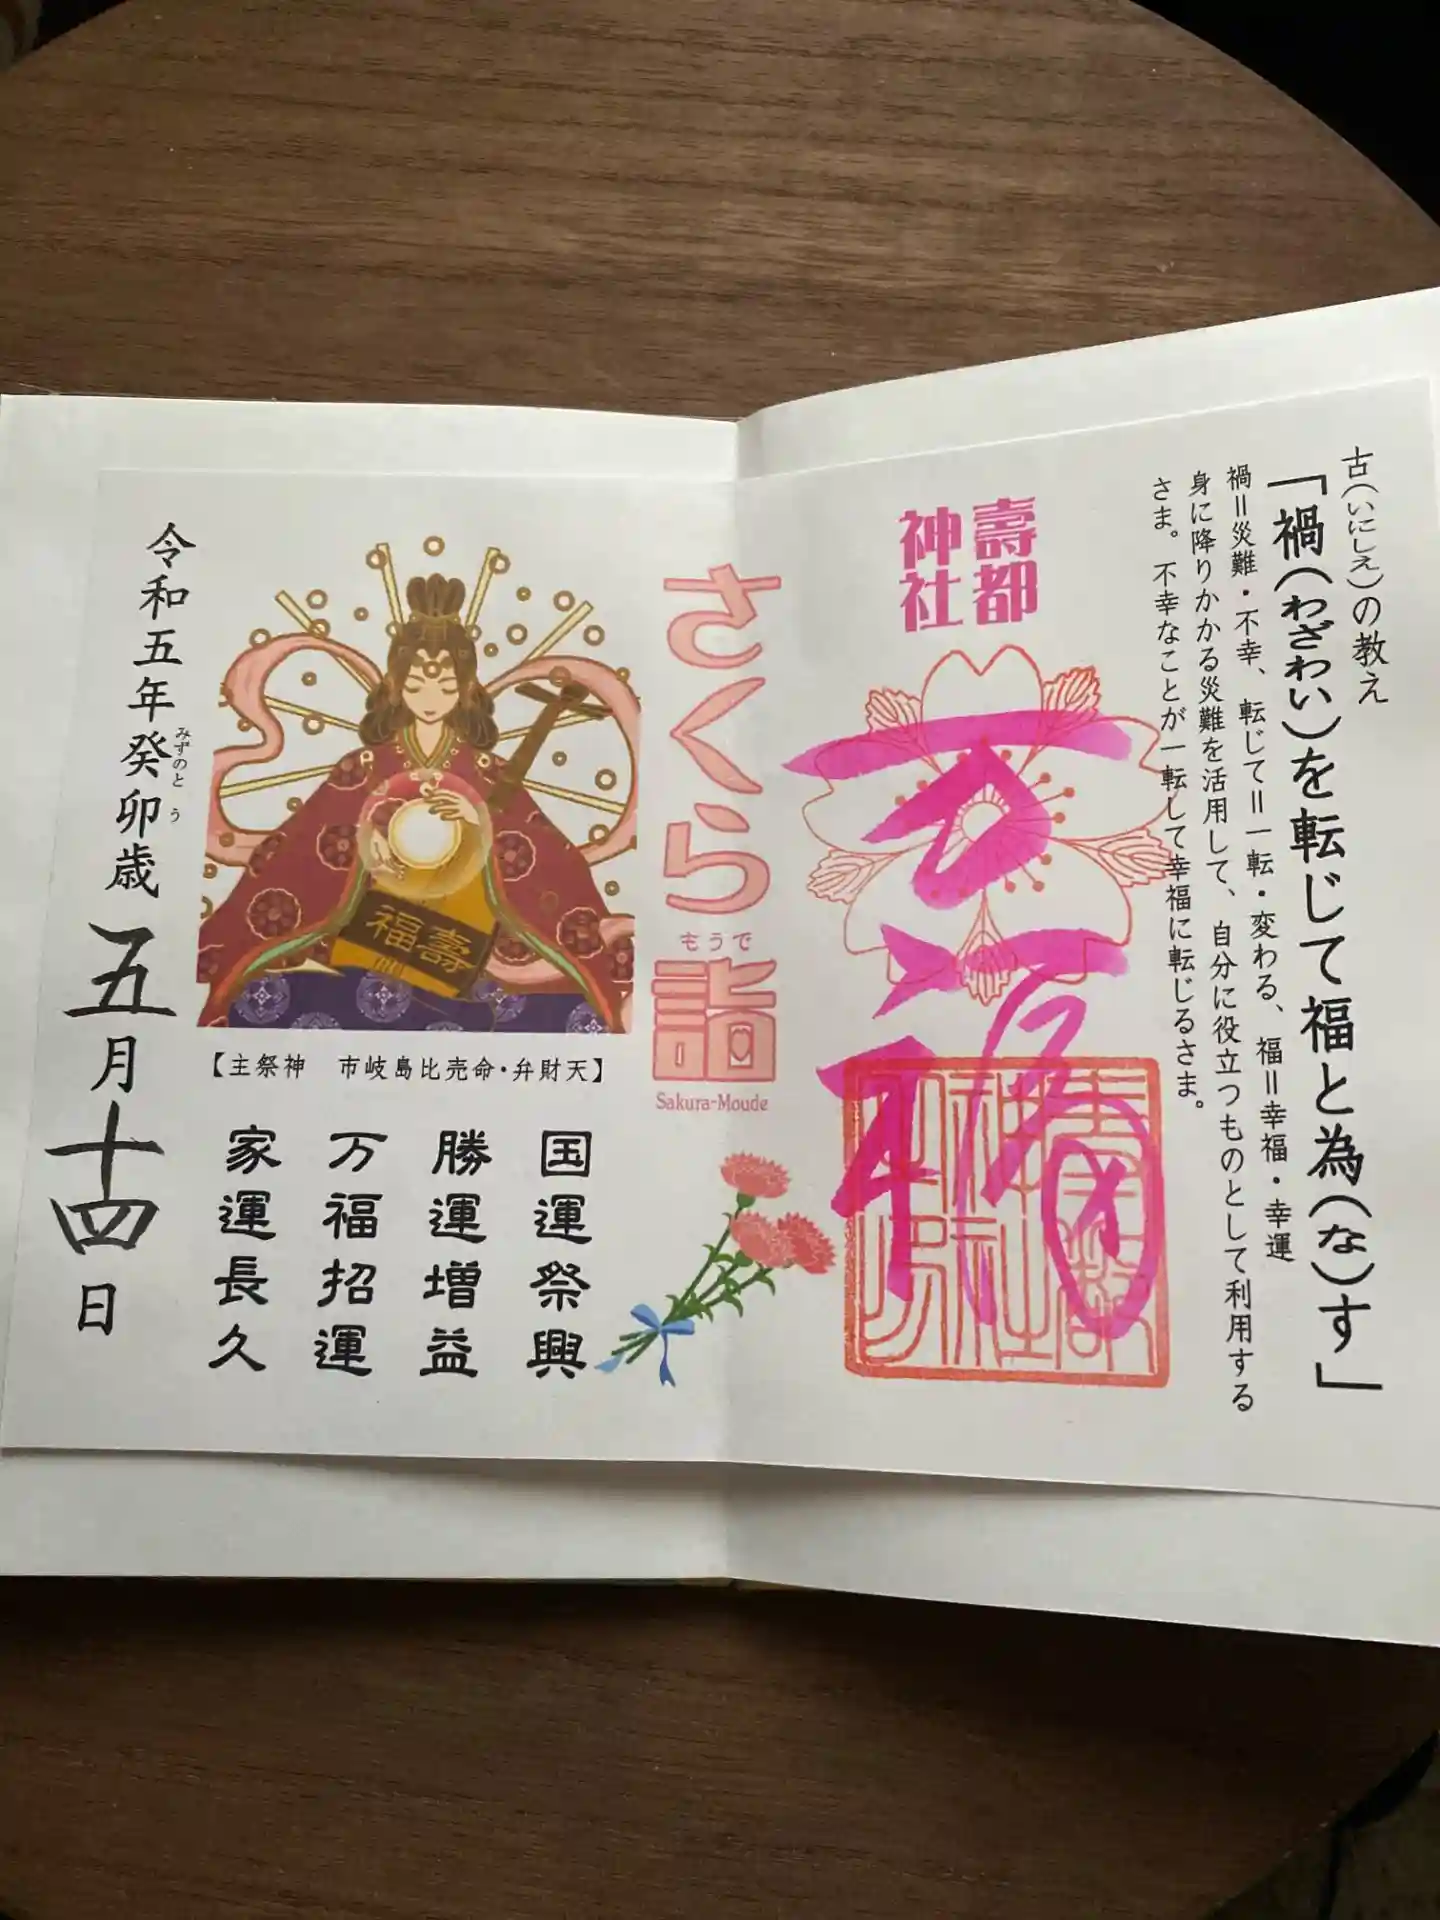 古(いにしえ)の教え
「禍(わざわい)を転じて福と為(な)す」
禍＝災難・不幸、転じて＝一転・変わる、福＝幸福・幸運
身に降りかかる災難を活用して、自分に役立つものとして利用する
さま。不幸なことが一転して幸福に転じるさま。
壽都
神社
万福
さくら詣
もうで
Sakura-Moude
壽
福
【主祭神　市岐島比売命・弁財天】
国運祭興
勝運増益
万福招運
家運長久
令和五年癸卯歳五月十四日
みずのと う